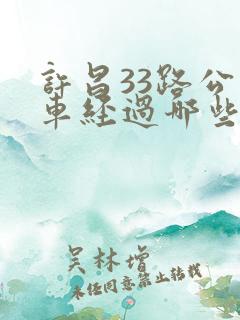 許昌33路公
車經過哪些
吴林增
未经同意禁止转载